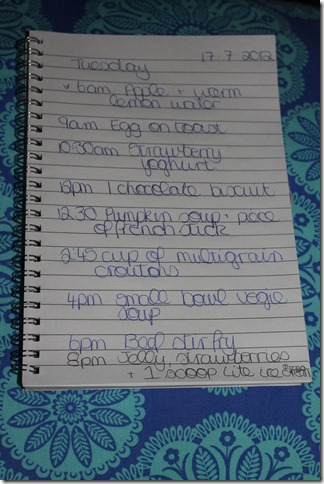 Tuesday 17 7 2012
6am Apple + warm
lemon water
9am Egg on toast
10:30am Strawberry
yoghurt
12pm 1 chocolate biscuit
12.30 Pumpkin soup + piece
of french stick
2:45 cup of multigrain
croutons
4pm small bowl vegie
soup
6pm Beef stirfry
8pm Jelly, strawberries
+ 1 scoop lite ice cream